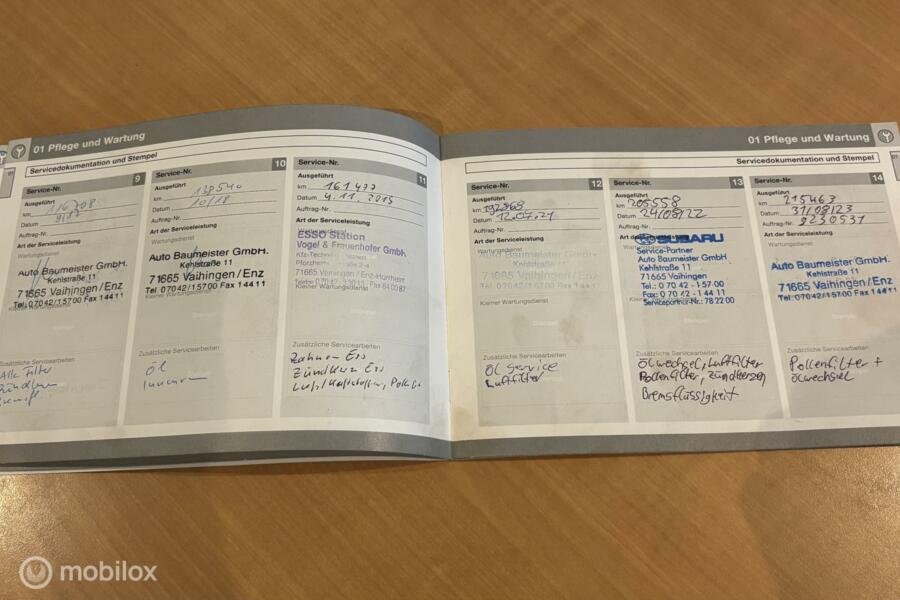 01 Pflege und Wartung
Servicedokumentation und Stempel
Service-Nr. 9
Ausgeführt
km 116708
Datum 9/17
Auftrag-Nr.
Art der Serviceleistung
Wartungsdienst
Auto Baumeister GmbH.
Kehlstraße 11
71665 Vaihingen/Enz
Tel. 07042/15700 Fax 14411
Kleiner Wartungsdienst
Zusätzliche Servicearbeiten
Alle Filter
Zündkerzen
Service-Nr. 10
Ausgeführt
km 138540
Datum 10/18
Auftrag-Nr.
Art der Serviceleistung
Wartungsdienst
Auto Baumeister GmbH.
Kehlstraße 11
71665 Vaihingen/Enz
Tel. 07042/15700 Fax 14411
Kleiner Wartungsdienst
Zusätzliche Servicearbeiten
Öl
Innenraum
Service-Nr. 11
Ausgeführt
km 161477
Datum 4.11.2015
Auftrag-Nr.
Art der Serviceleistung
ESSO Station
Vogel & Frauenhofer Gmbh
71665 Vaihingen/Enz-Horrheim
Kleiner Wartungsdienst
Stempel
Zusätzliche Servicearbeiten
Zahnen Ers
Zündkerz Ers
01 Pflege und Wartung
Servicedokumentation und Stempel
Service-Nr. 12
Ausgeführt
km 192868
Datum 12.07.21
Auftrag-Nr.
Art der Serviceleistung
Wartungsdienst
Auto Baumeister GmbH.
Kehlstraße 11
71665 Vaihingen/Enz
Kleiner Wartungsdienst
Stempel
Zusätzliche Servicearbeiten
Öl Service
Luftfilter
Service-Nr. 13
Ausgeführt
km 205558
Datum 24/08/22
Auftrag-Nr.
Art der Serviceleistung
SUBARU
Service-Partner
Auto Baumeister GmbH
Kehlstraße 11
71665 Vaihingen
Tel.: 0 70 42 - 1 57 00
Fax: 0 70 42 - 1 44 11
Servicepartner-Nr.: 78 22 00
Stempel
Zusätzliche Servicearbeiten
Ölwechsel, Luftfilter
Pollenfilter, Zündkerzen
Bremsflüssigkeit
Service-Nr. 14
Ausgeführt
km 215463
Datum 31/08/23
Auftrag-Nr. 9230531
Art der Serviceleistung
Wartungsdienst
Auto Baumeister GmbH.
Kehlstraße 11
71665 Vaihingen/Enz
Tel. 07042/15700 Fax 14411
Stempel
Zusätzliche Servicearbeiten
Pollenfilter +
Ölwechsel
mobilox